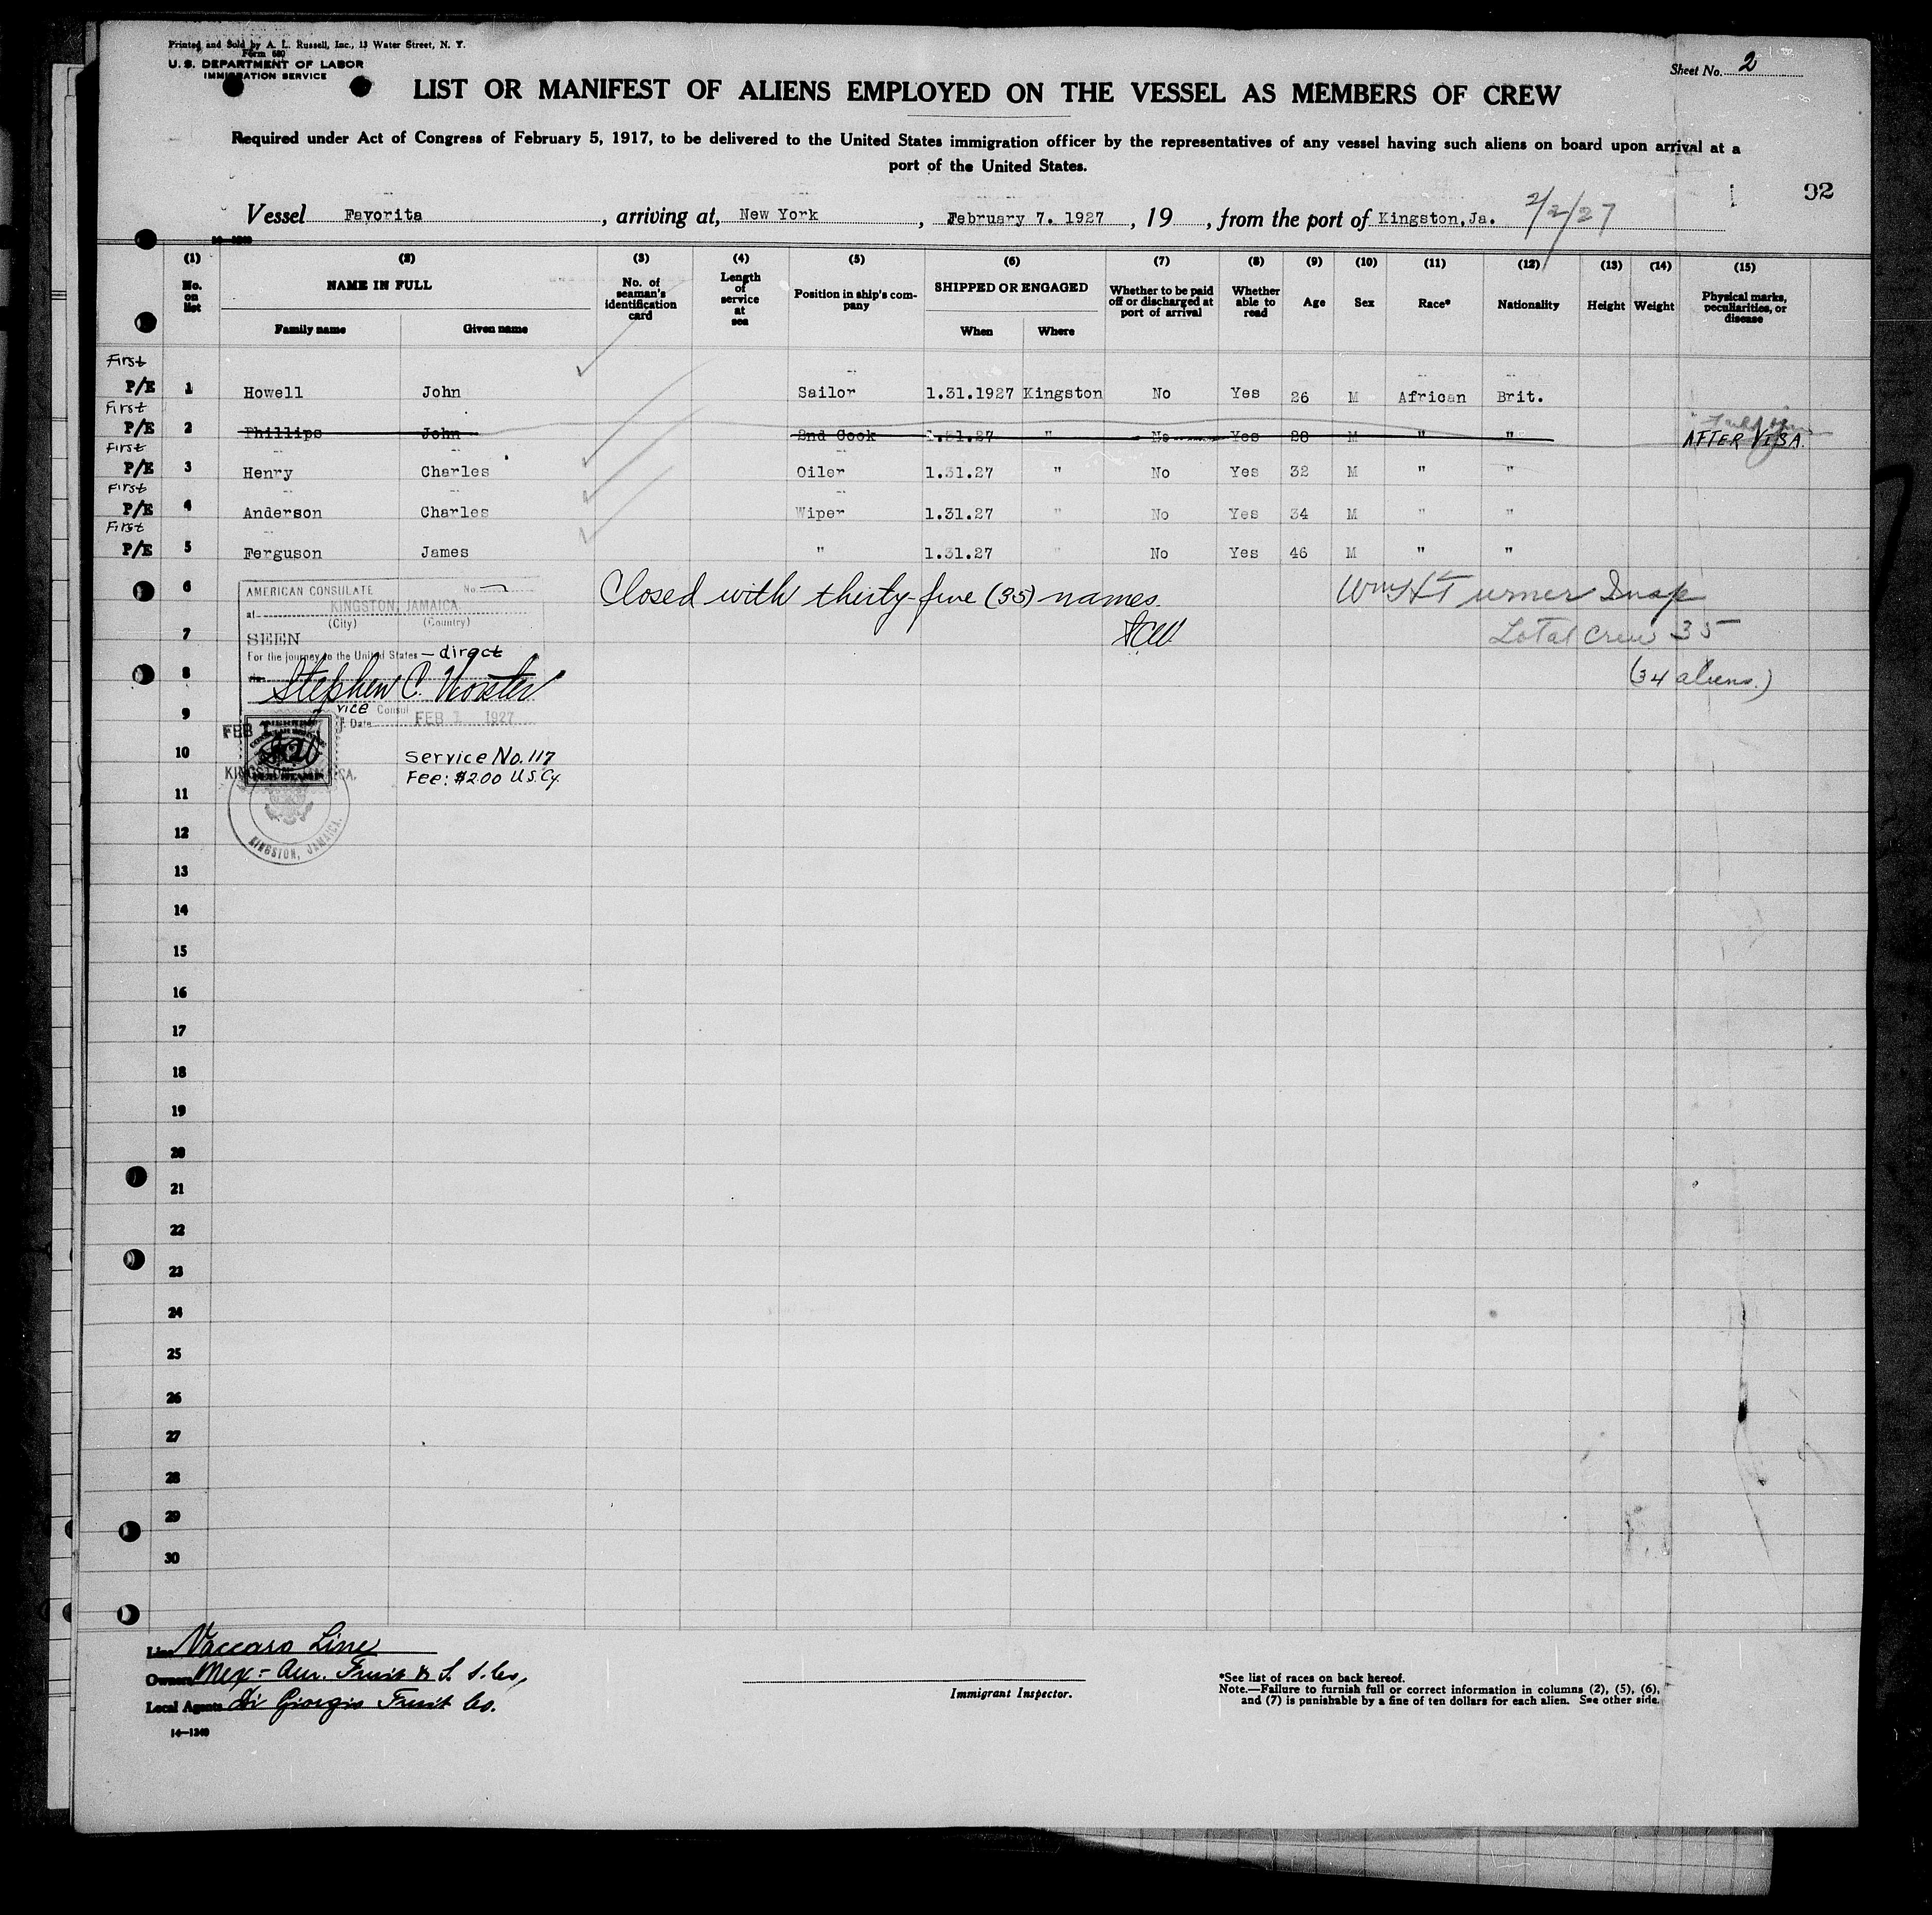 Printed and Sold by A. L. Russell, Inc., 13 Water Street, N. Y.
Form 680
U. S. DEPARTMENT OF LABOR
IMMIGRATION SERVICE
Sheet No. 2
LIST OR MANIFEST OF ALIENS EMPLOYED ON THE VESSEL AS MEMBERS OF CREW
Required under Act of Congress of February 5, 1917, to be delivered to the United States immigration officer by the representatives of any vessel having such aliens on board upon arrival at a
port of the United States.
92
Vessel Favorita, arriving at, New York, February 7. 1927, 19, from the port of Kingston, Ja. 2/2/27
(1) (2) (3) (4) (5) (6) (7) (8) (9) (10) (11) (12) (13) (14) (15)
No. on list NAME IN FULL Family name Given name No. of seaman's identification card Length of service at sea Position in ship's company SHIPPED OR ENGAGED When Where Whether to be paid off or discharged at port of arrival Whether able to read Age Sex Race* Nationality Height Weight Physical marks, peculiarities, or disease
First
P/E 1 Howell John Sailor 1.31.1927 Kingston No Yes 26 M African Brit.
First
P/E 2 Phillips John 2nd Cook 1.31.27 " No Yes 28 M " " AFTER VISA.
First
P/E 3 Henry Charles Oiler 1.31.27 " No Yes 32 M " "
First
P/E 4 Anderson Charles Wiper 1.31.27 " No Yes 34 M " "
First
P/E 5 Ferguson James " 1.31.27 " No Yes 46 M " "
6
AMERICAN CONSULATE No. —
at KINGSTON, JAMAICA.
(City) (Country)
Closed with thirty-five (35) names.
Wm H Turner Insp
7
SEEN
For the journey to the United States — direct
Total crew 35
8
Stephen C. Worster
(34 aliens.)
9
Vice Consul
Date FEB 1 1927
FEB 1
10
KINGSTON, JAMAICA.
Service No. 117
Fee: $2.00 U.S.Cy.
11
12
KINGSTON, JAMAICA.
13
14
15
16
17
18
19
20
21
22
23
24
25
26
27
28
29
30
Line Vaccaro Line
Owners Mex-Am. Fruit & S. S. Co.,
Local Agents Di Giorgio Fruit Co.
14—1240
Immigrant Inspector.
*See list of races on back hereof.
Note.—Failure to furnish full or correct information in columns (2), (5), (6),
and (7) is punishable by a fine of ten dollars for each alien. See other side.